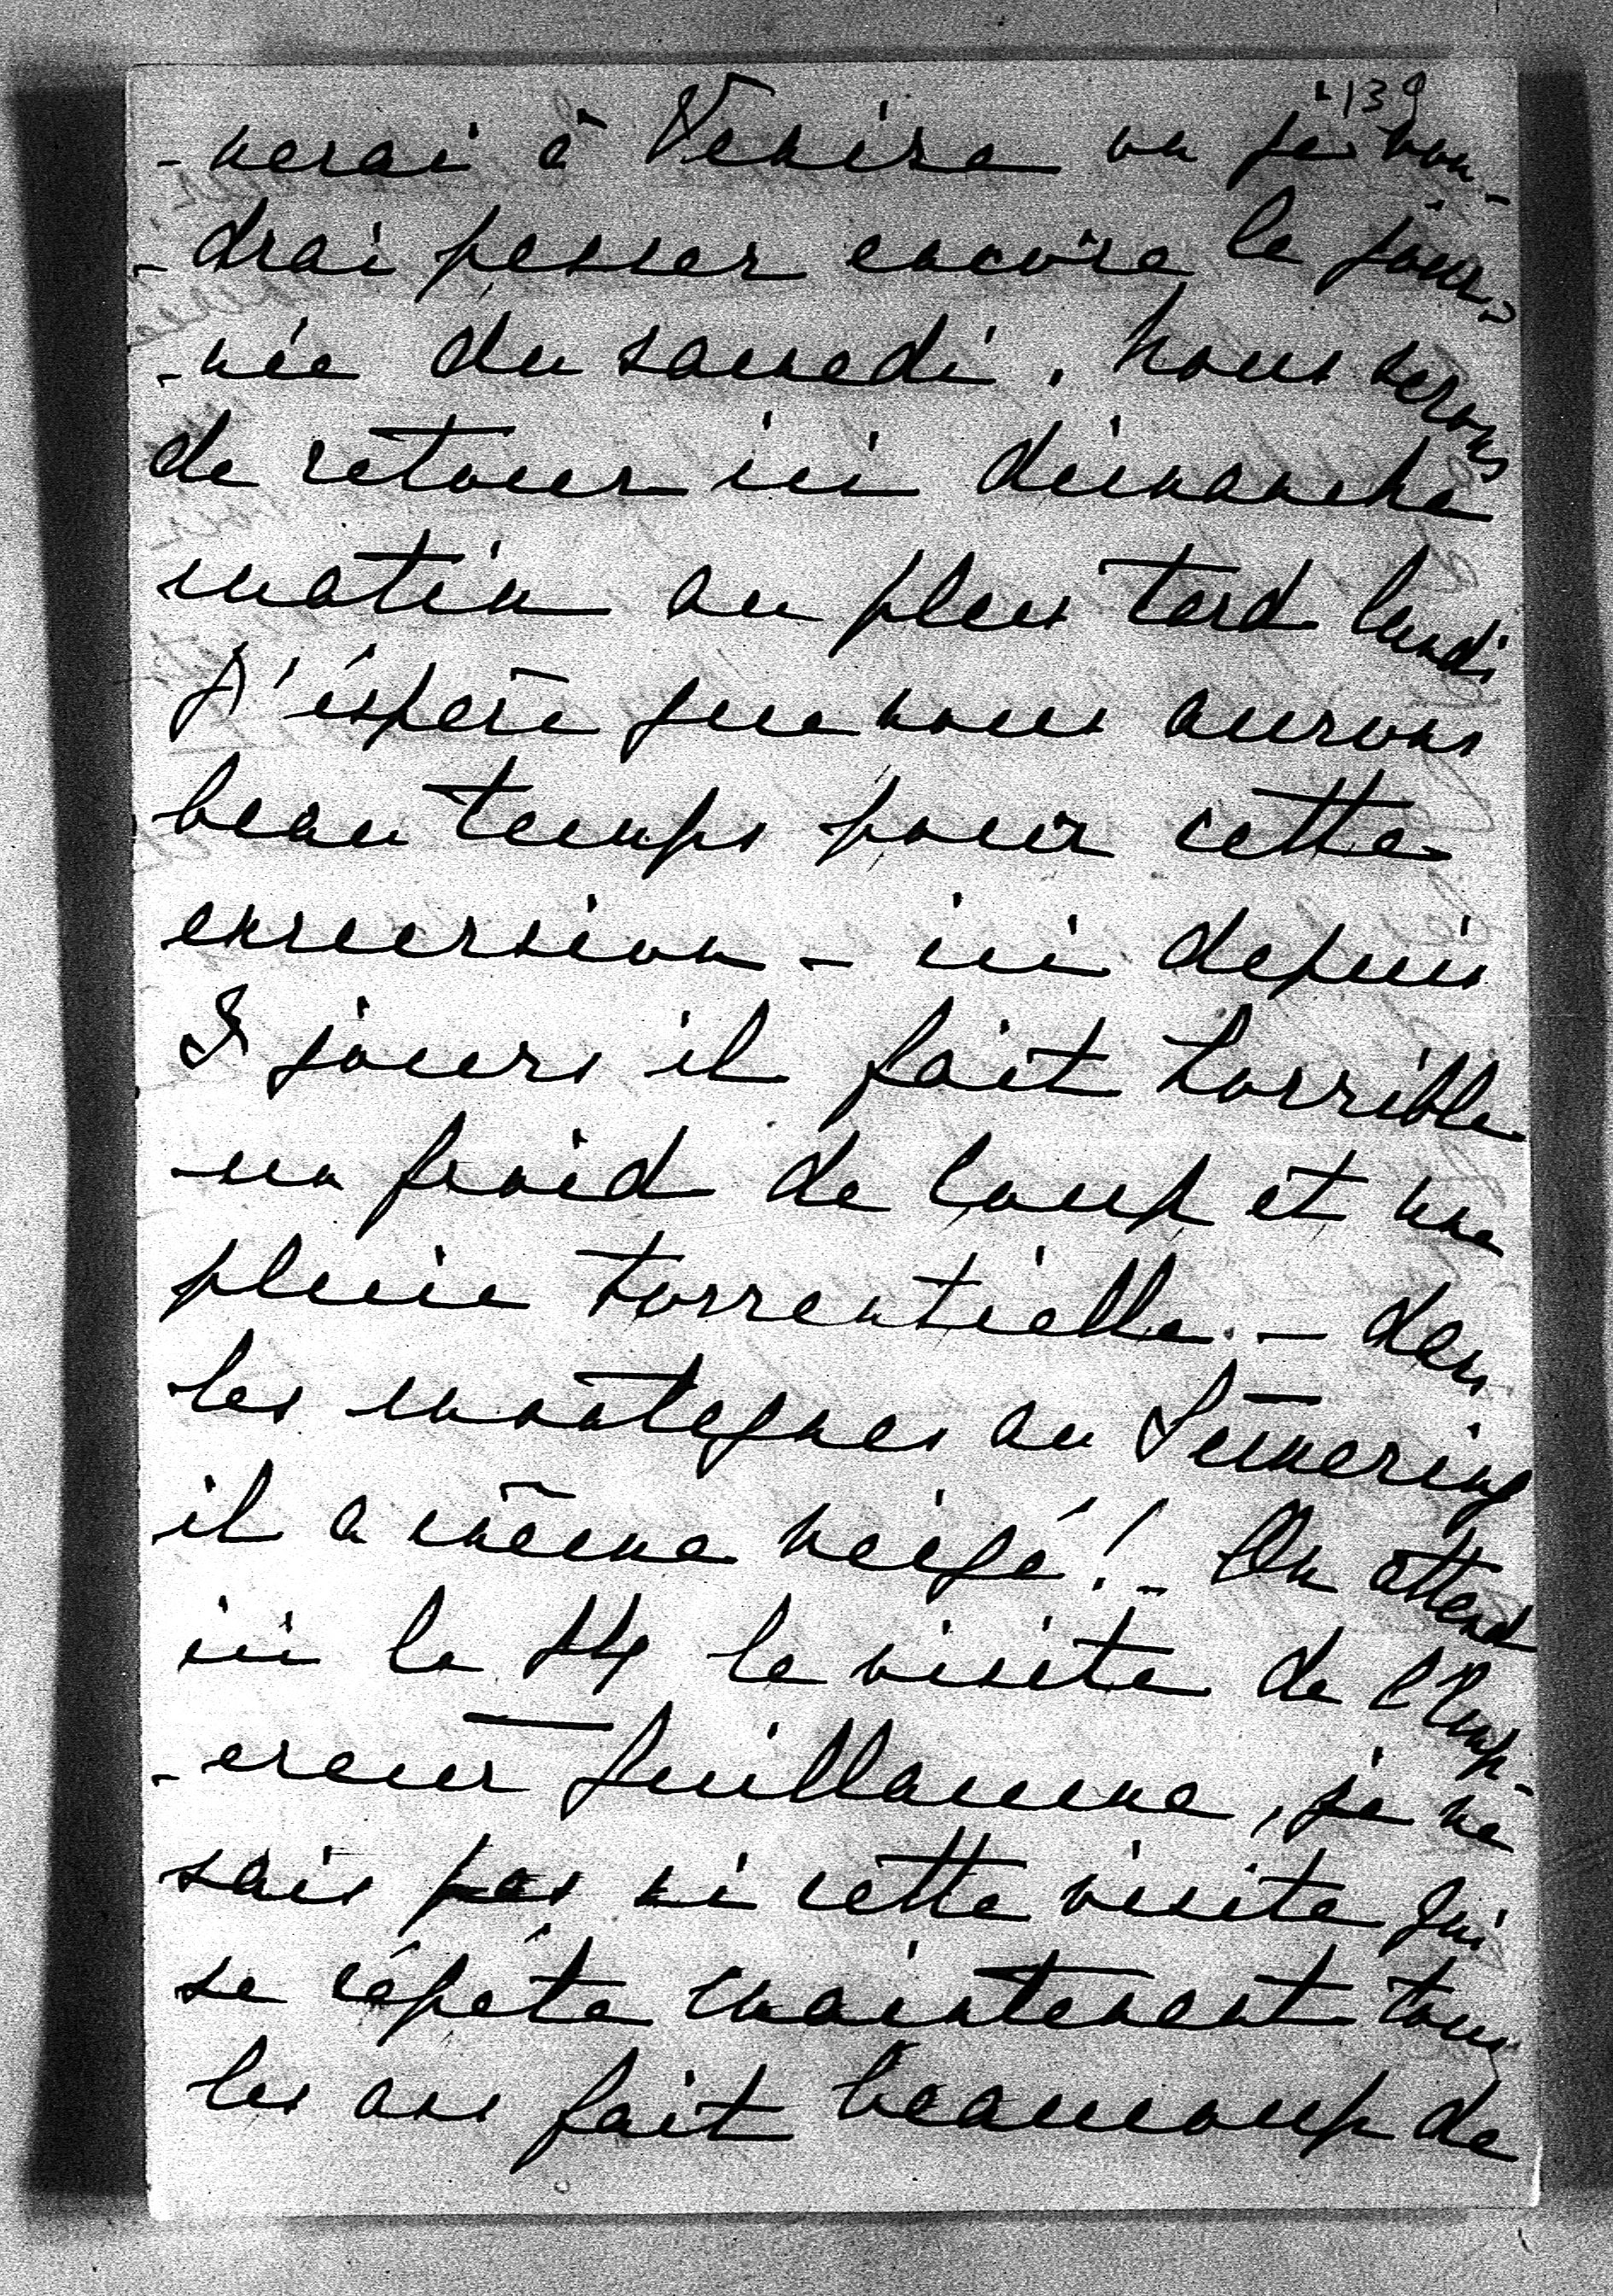 139
-nerai à Venise où je vou-
-drai passer encore la jour-
-née du samedi. Nous serons
de retour ici dimanche
matin au plus tard lundi
J'éspère que nous aurons
beau temps pour cette
excursion – ici depuis
jours il fait horrible
un froid de loup et une
pluie torrentielle – dans
les montagnes au Semering
il a même neigé! – On attend
ici le 14 la visite de l'Emp-
-ereur Guillaume, je ne
sais pas si cette visite qui
se répéte maintenant tous
les ans fait beaucoup de